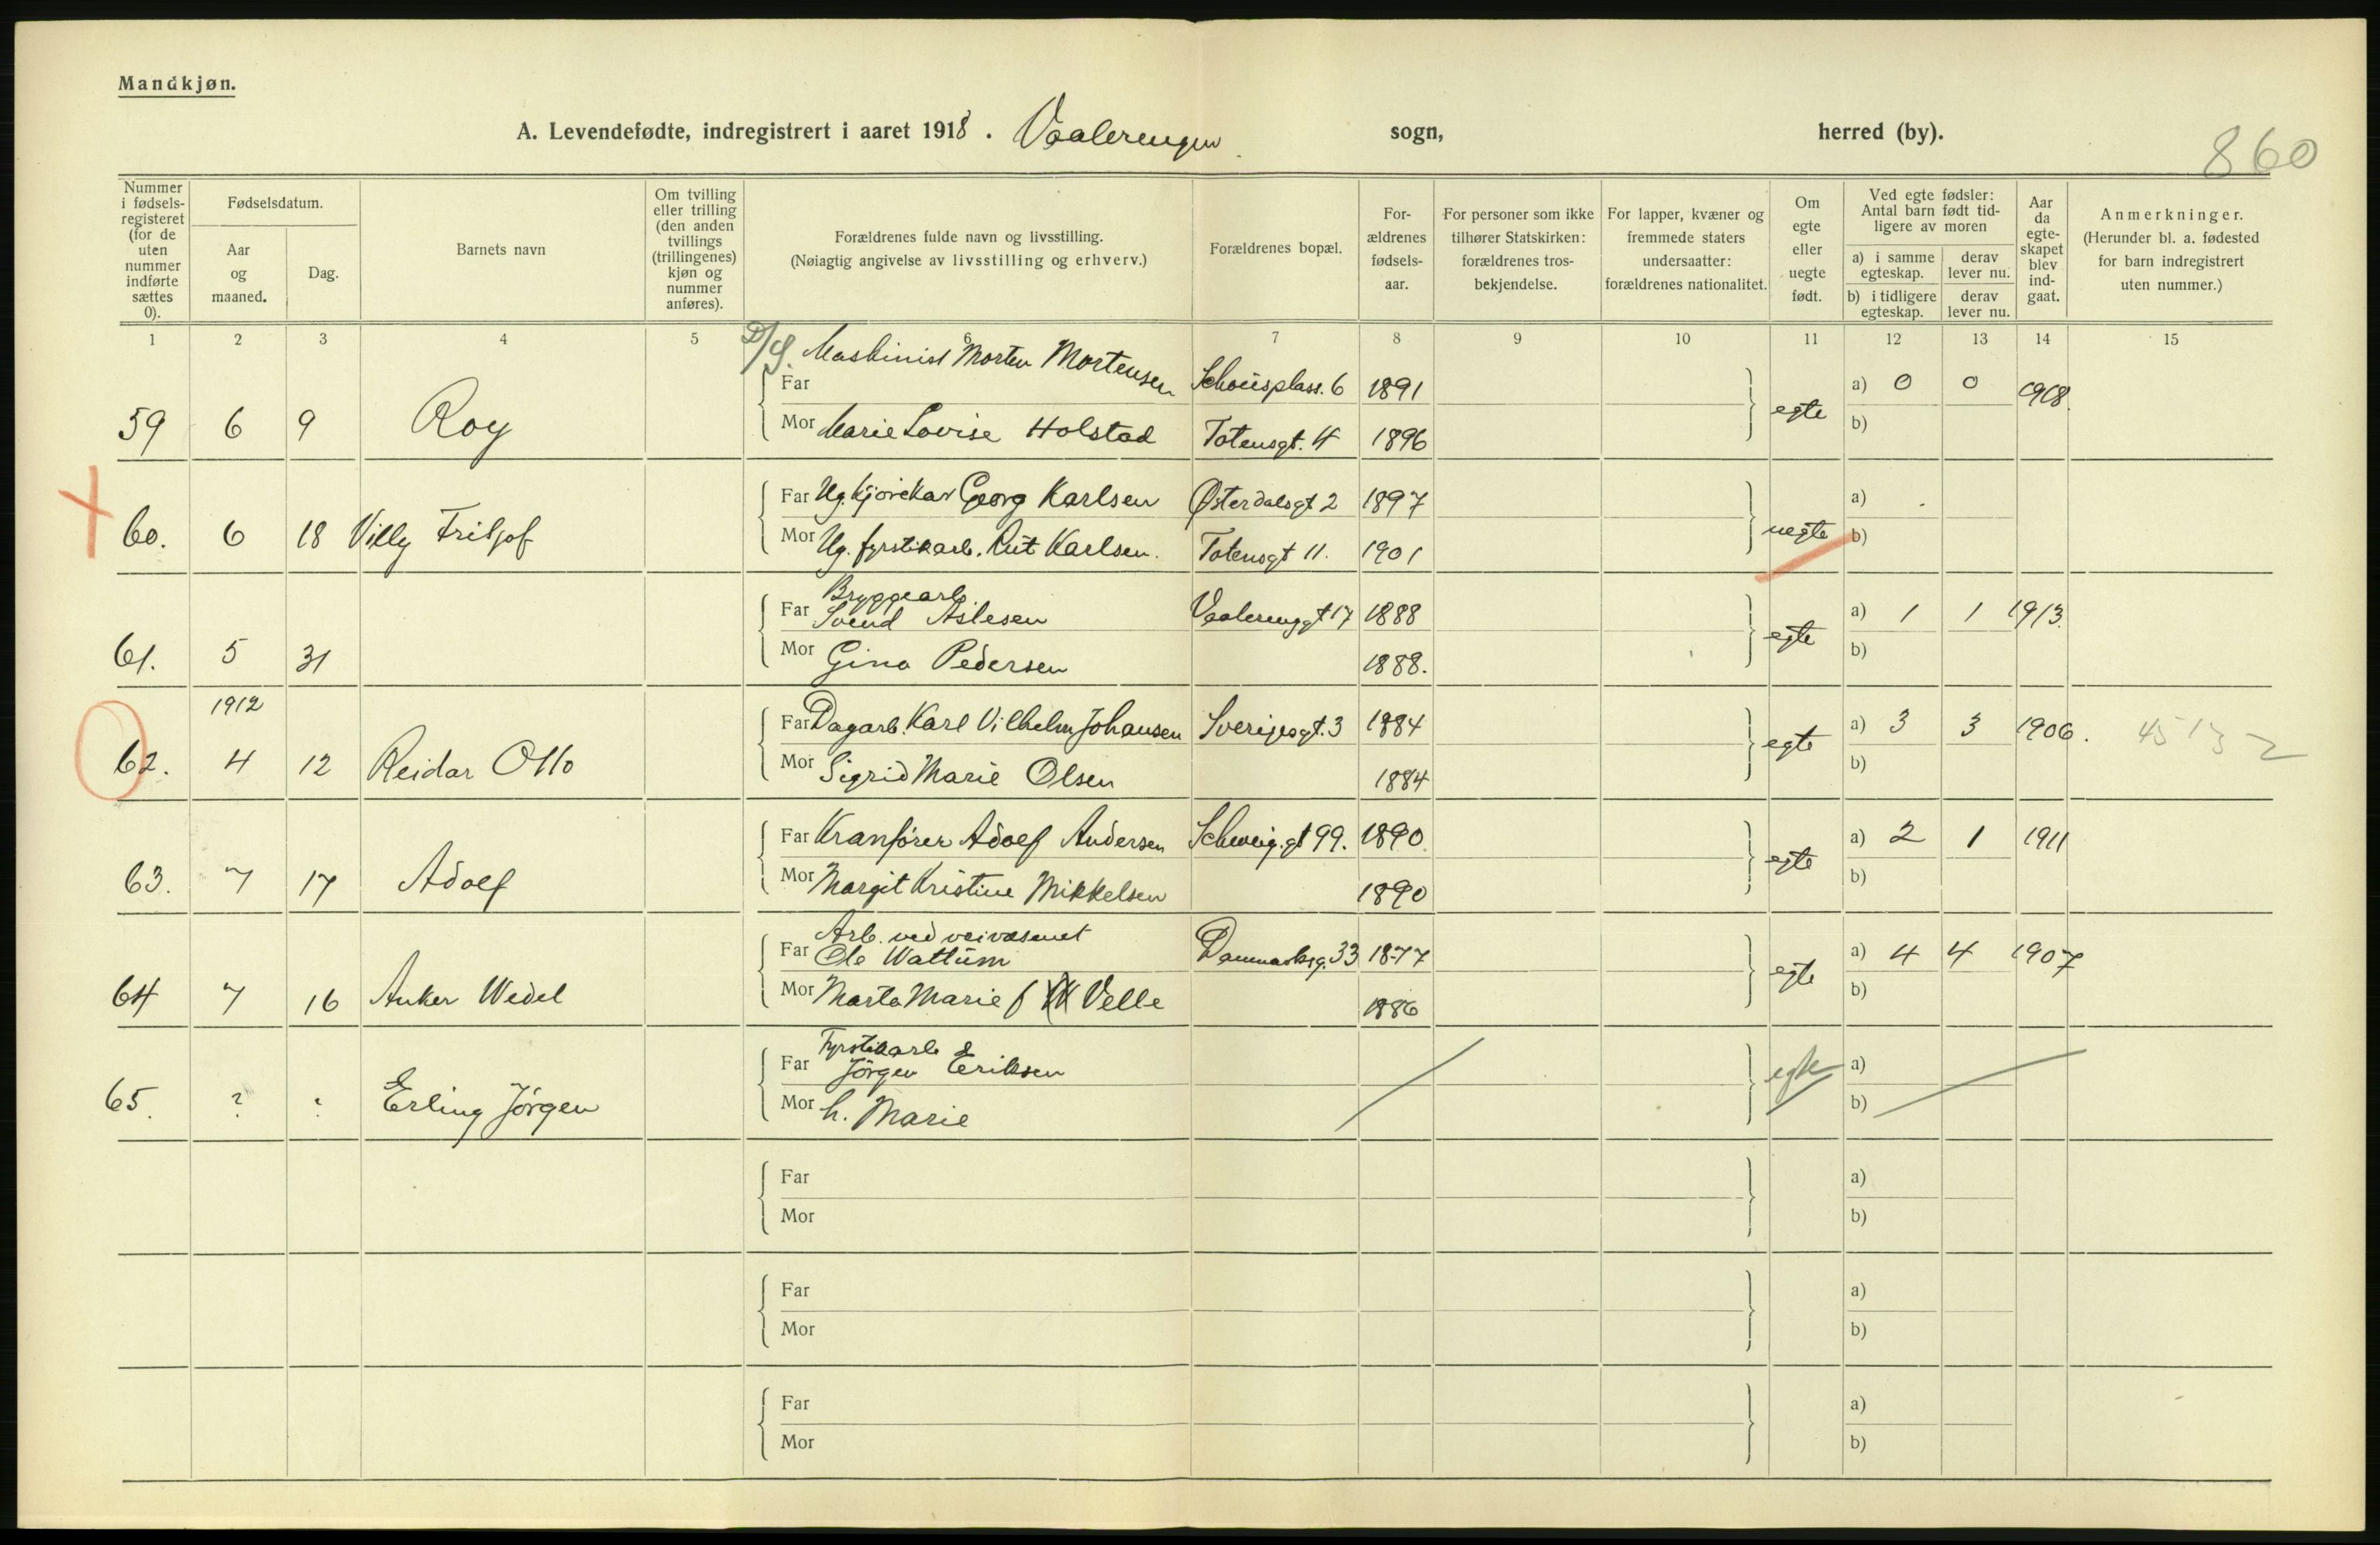 Mandkjøn.
A. Levendefødte, indregistrert i aaret 1918. Vaalerengen sogn, herred (by).
860
Nummer i fødsels-registeret (for de uten nummer indførte sættes 0).
Fødselsdatum.
Aar og maaned.
Dag.
Barnets navn
Om tvilling eller trilling (den anden tvillings (trillingenes) kjøn og nummer anføres).
Forældrenes fulde navn og livsstilling.
(Nøiagtig angivelse av livsstilling og erhverv.)
Forældrenes bopæl.
For-ældrenes fødsels-aar.
For personer som ikke tilhører Statskirken: forældrenes tros-bekjendelse.
For lapper, kvæner og fremmede staters undersaatter: forældrenes nationalitet.
Om egte eller uegte født.
Ved egte fødsler: Antal barn født tid-ligere av moren
a) i samme egteskap. derav lever nu.
b) i tidligere egteskap. derav lever nu.
Aar da egte-skapet blev ind-gaat.
Anmerkninger.
(Herunder bl. a. fødested for barn indregistrert uten nummer.)
1 2 3 4 5 6 7 8 9 10 11 12 13 14 15
D/S. Maskinist Morten Mortensen
Far Schousplass. 6 1891 a) 0 0 1918.
59 6 9 Roy Mor Marie Lovise Holstad Totensgt. 4 1896 egte b)
Far Ug. kjørekar Georg Karlsen Østerdalsgt 2 1897 a)
60. 6 18 Villy Fritjof Mor Ug. fyrstikarb. Rut Karlsen. Totensgt 11. 1901 uegte b)
Bryggearb
Far Svend Aslesen Vaalerenggt 17 1888 a) 1 1 1913.
61. 5 31 Mor Gina Pedersen 1888. egte b)
1912
Far Dagarb. Karl Vilhelm Johansen Sverigesgt. 3 1884 a) 3 3 1906.
62. 4 12 Reidar Otto Mor Sigrid Marie Olsen 1884 egte b)
Far Kranfører Adolf Andersen Schweig. gt 99. 1890. a) 2 1 1911
63. 7 17 Adolf Mor Margit Kristine Mikkelsen 1890 egte b)
Arb. ved veivæsenet
Far Ole Wattum Danmarksg. 33 1877 a) 4 4 1907
64 7 16 Anker Wedel Mor Marta Marie f Velle 1886 egte b)
Fyrstikarb
Far Jörgen Eriksen egte a)
65. ? ? Erling Jörgen Mor h. Marie b)
Far a)
Mor b)
Far a)
Mor b)
Far a)
Mor b)